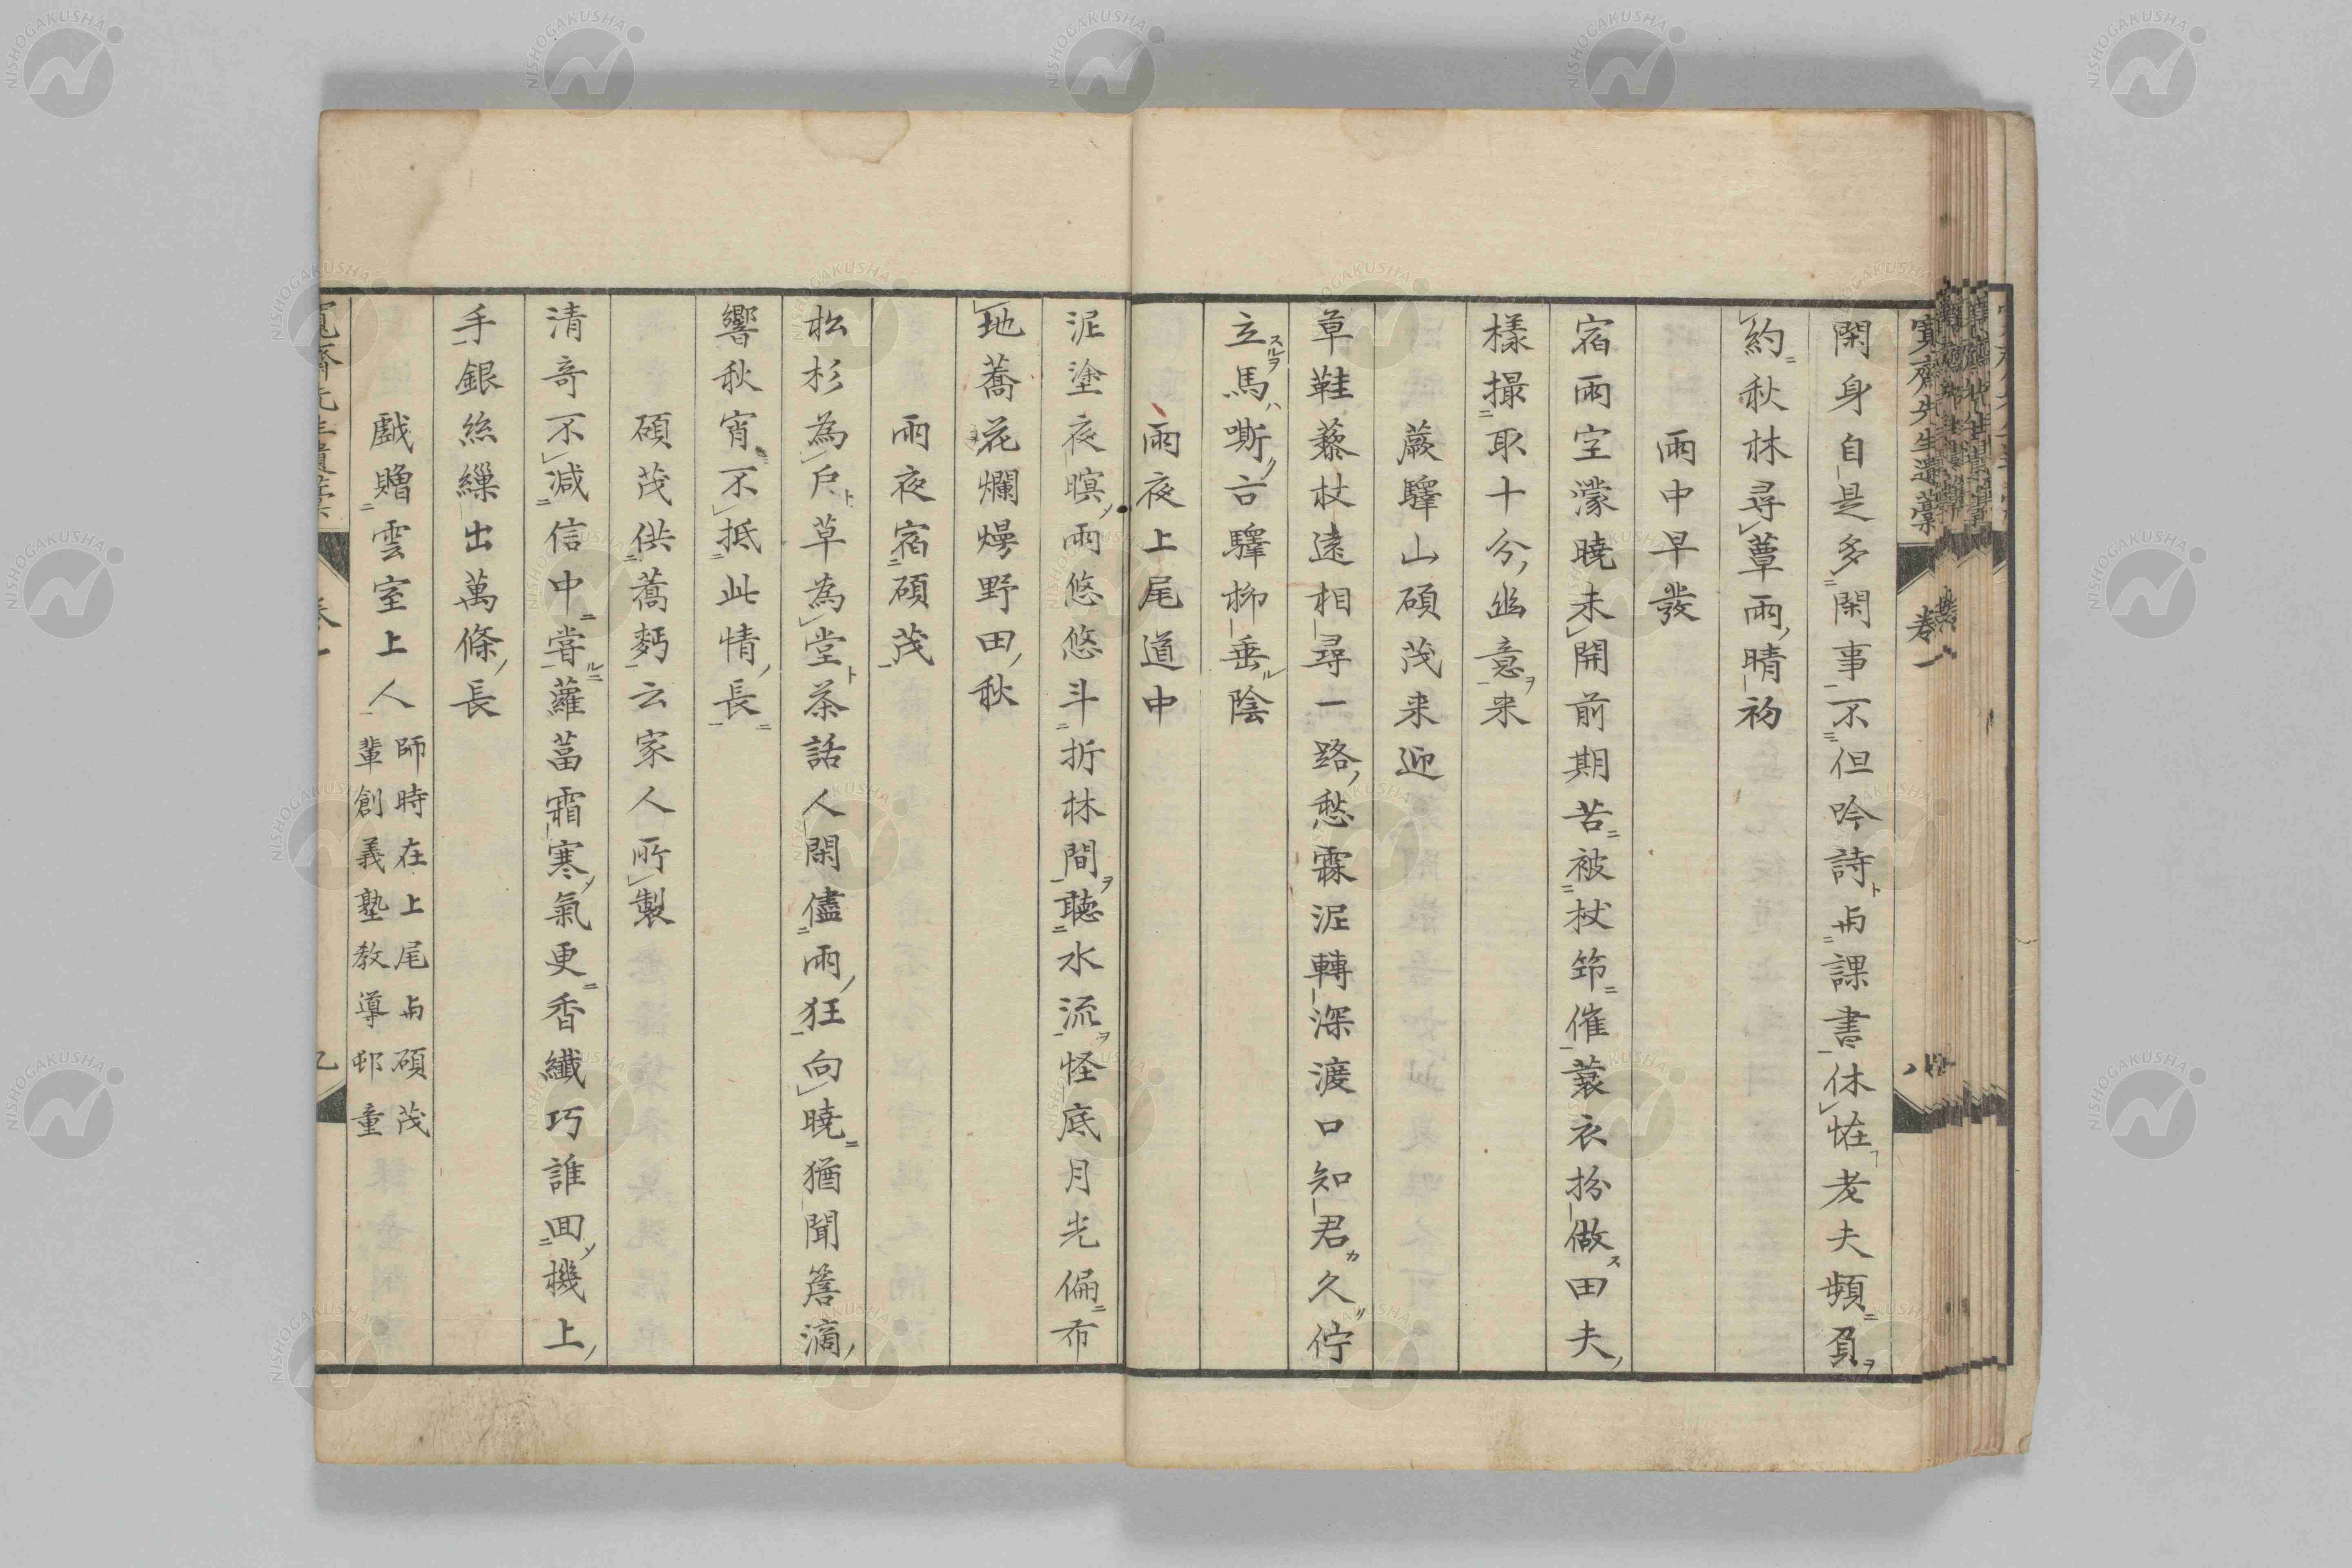 閑身自是多閑事不但吟詩与課書休怪老夫頻負
約秋林尋蕈雨晴初
雨中早發
宿雨空濛曉未開前期苦被杖笻催蓑衣扮做田夫
樣撮取十分幽意来
蕨驛山碩茂来迎
草鞋藜杖遠相尋一路愁霖泥轉深渡口知君久佇
立馬嘶古驛柳垂陰
雨夜上尾道中
泥塗夜暝雨悠悠斗折林間聽水流怪底月光偏布
地蕎花爛熳野田秋
雨夜宿碩茂
松杉為戶草為堂茶話人閑儘雨狂向曉猶聞簷滴
響秋宵不抵此情長
碩茂供蕎麪云家人所製
清奇不減信中嘗蘿葍霜寒氣更香纖巧誰回機上
手銀絲繰出萬條長
戲贈雲室上人
師時在上尾与碩茂
輩創義塾教導邨童
寬齋先生遺藁
卷一
八
NISHOGAKUSHA